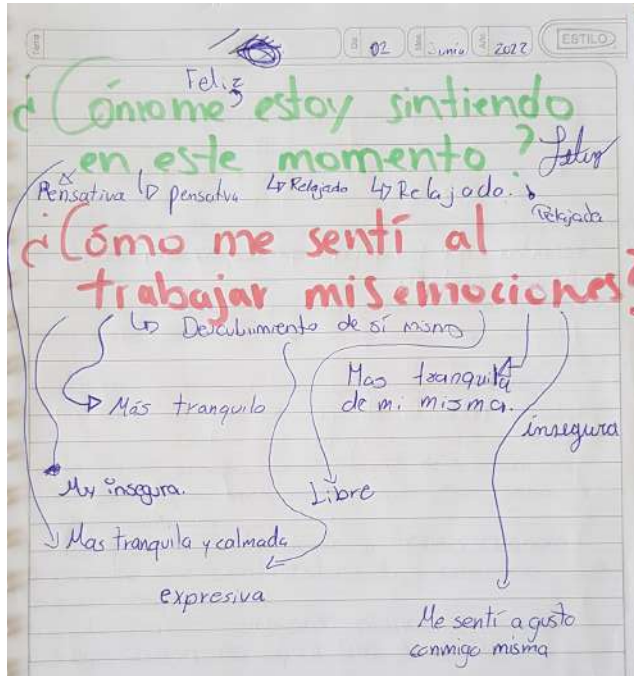 Fecha
Día 02 Mes Junio Año 2022 ESTILO
Feliz
¿Cómo me estoy sintiendo
en este momento? Feliz
Pensativa pensatva Relajado Relajado. Relajada
¿Cómo me sentí al
trabajar mis emociones?
Descubrimiento de sí mismo
Mas tranquila
de mi misma.
Más tranquilo
insegura
My insegura.
Libre
Mas tranquila y calmada
expresiva
Me sentí a gusto
conmigo misma